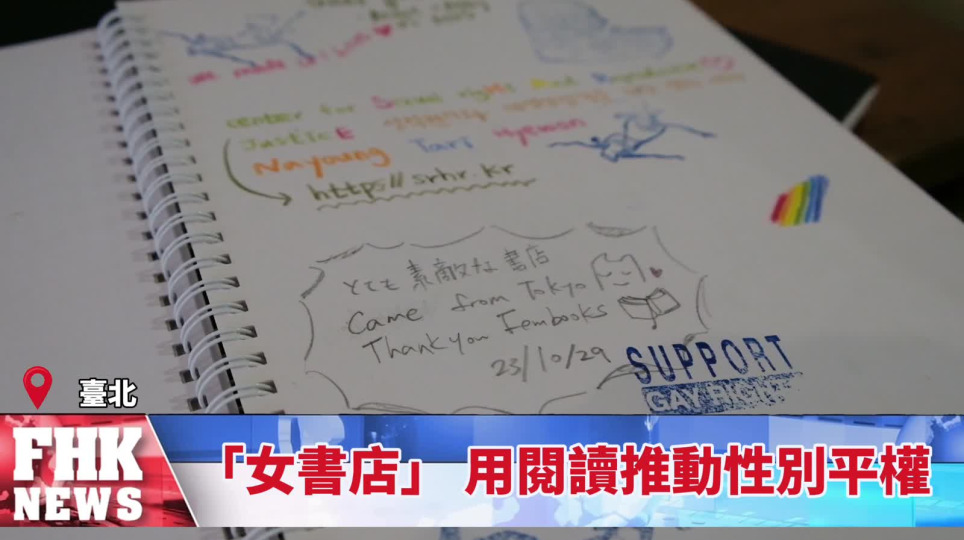 we made
center for Sexual rigHts And Reproductive
JusticE
Nayoung Tari Hyemin
https//srhr.kr
とても素敵な書店
Came from Tokyo
Thank you Fembooks
23/10/29
SUPPORT
GAY RIGHTS
臺北
FHK
NEWS
「女書店」 用閱讀推動性別平權